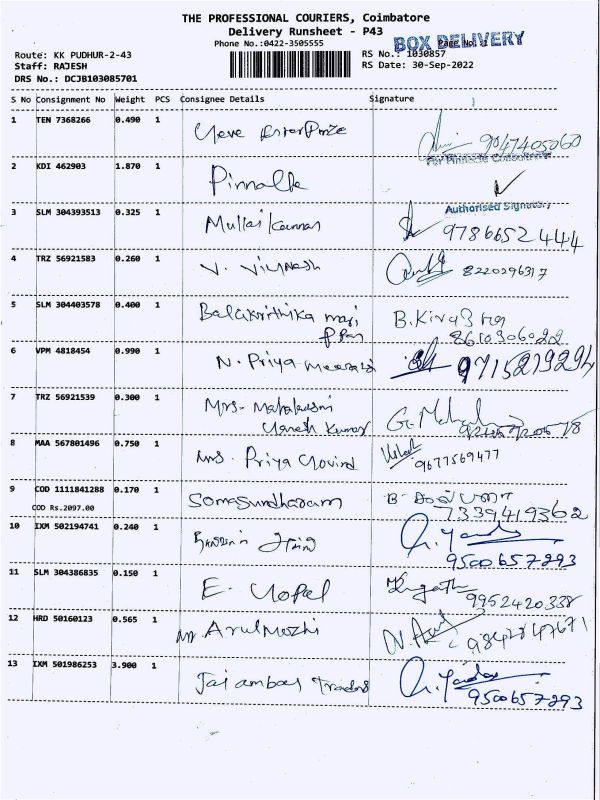 THE PROFESSIONAL COURIERS, Coimbatore
Delivery Runsheet - P43
Phone No.:0422-3505555
BOX DELIVERY
Page No.:1
Route: KK PUDHUR-2-43
RS No.: 1030857
Staff: RAJESH
RS Date: 30-Sep-2022
DRS No.: DCJB103085701
S No Consignment No Weight PCS Consignee Details Signature
1 TEN 7368266 0.490 1 9047405060
For Pinnacle Consultants
2 KDI 462903 1.870 1
Authorised Signatory
3 SLM 304393513 0.325 1 Mullai Kannan 9786652444
4 TRZ 56921583 0.260 1 V. Vignesh 8220296317
5 SLM 304403578 0.400 1 Balakrithika mari B. Kiruba
ppan
6 VPM 4818454 0.990 1 N. Priya 9715219294
7 TRZ 56921539 0.300 1 Mrs. Mahalaxmi
Ganesh Kumar
8 MAA 567801496 0.750 1 Mrs. Priya Govind 9677569477
9 COD 1111841288 0.170 1 Somasundharam B. 7339419362
COD Rs.2097.00
10 IXM 502194741 0.240 1 9500657293
11 SLM 304386835 0.150 1 E. Gopal 9952420338
12 HRD 50160123 0.565 1 Arulmozhi
13 IXM 501986253 3.900 1 Jai ambay Traders 9500657293